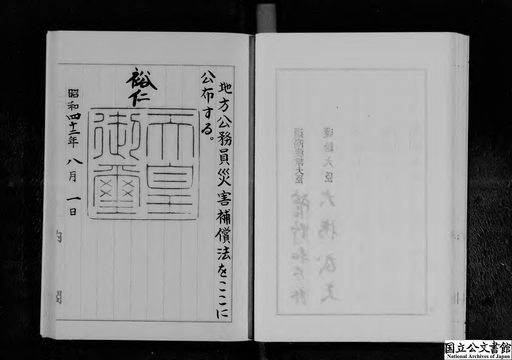 地方公務員災害補償法をここに
公布する。
裕仁
天皇
御璽
昭和四十二年八月一日
内閣
国立公文書館
National Archives of Japan